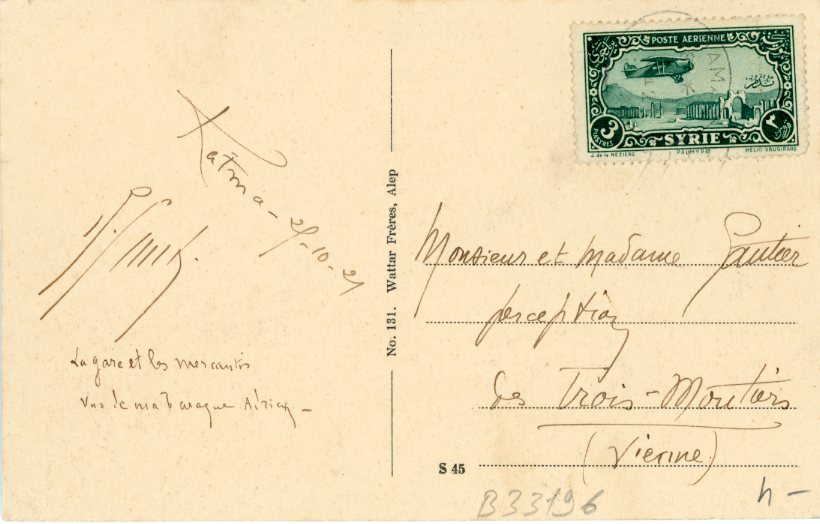 POSTE AÉRIENNE
3
PIASTRES
SYRIE
J. de la NÉZIÈRE PALMYRE HELIO VAUGIRARD
Katma - 25-10-31
Monsieur et Madame Gautier
perception
des Trois-Moutiers
(Vienne)
La gare et les mercantis
vus de ma baraque
No. 131. Wattar Frères, Alep
S 45
B33196
h-